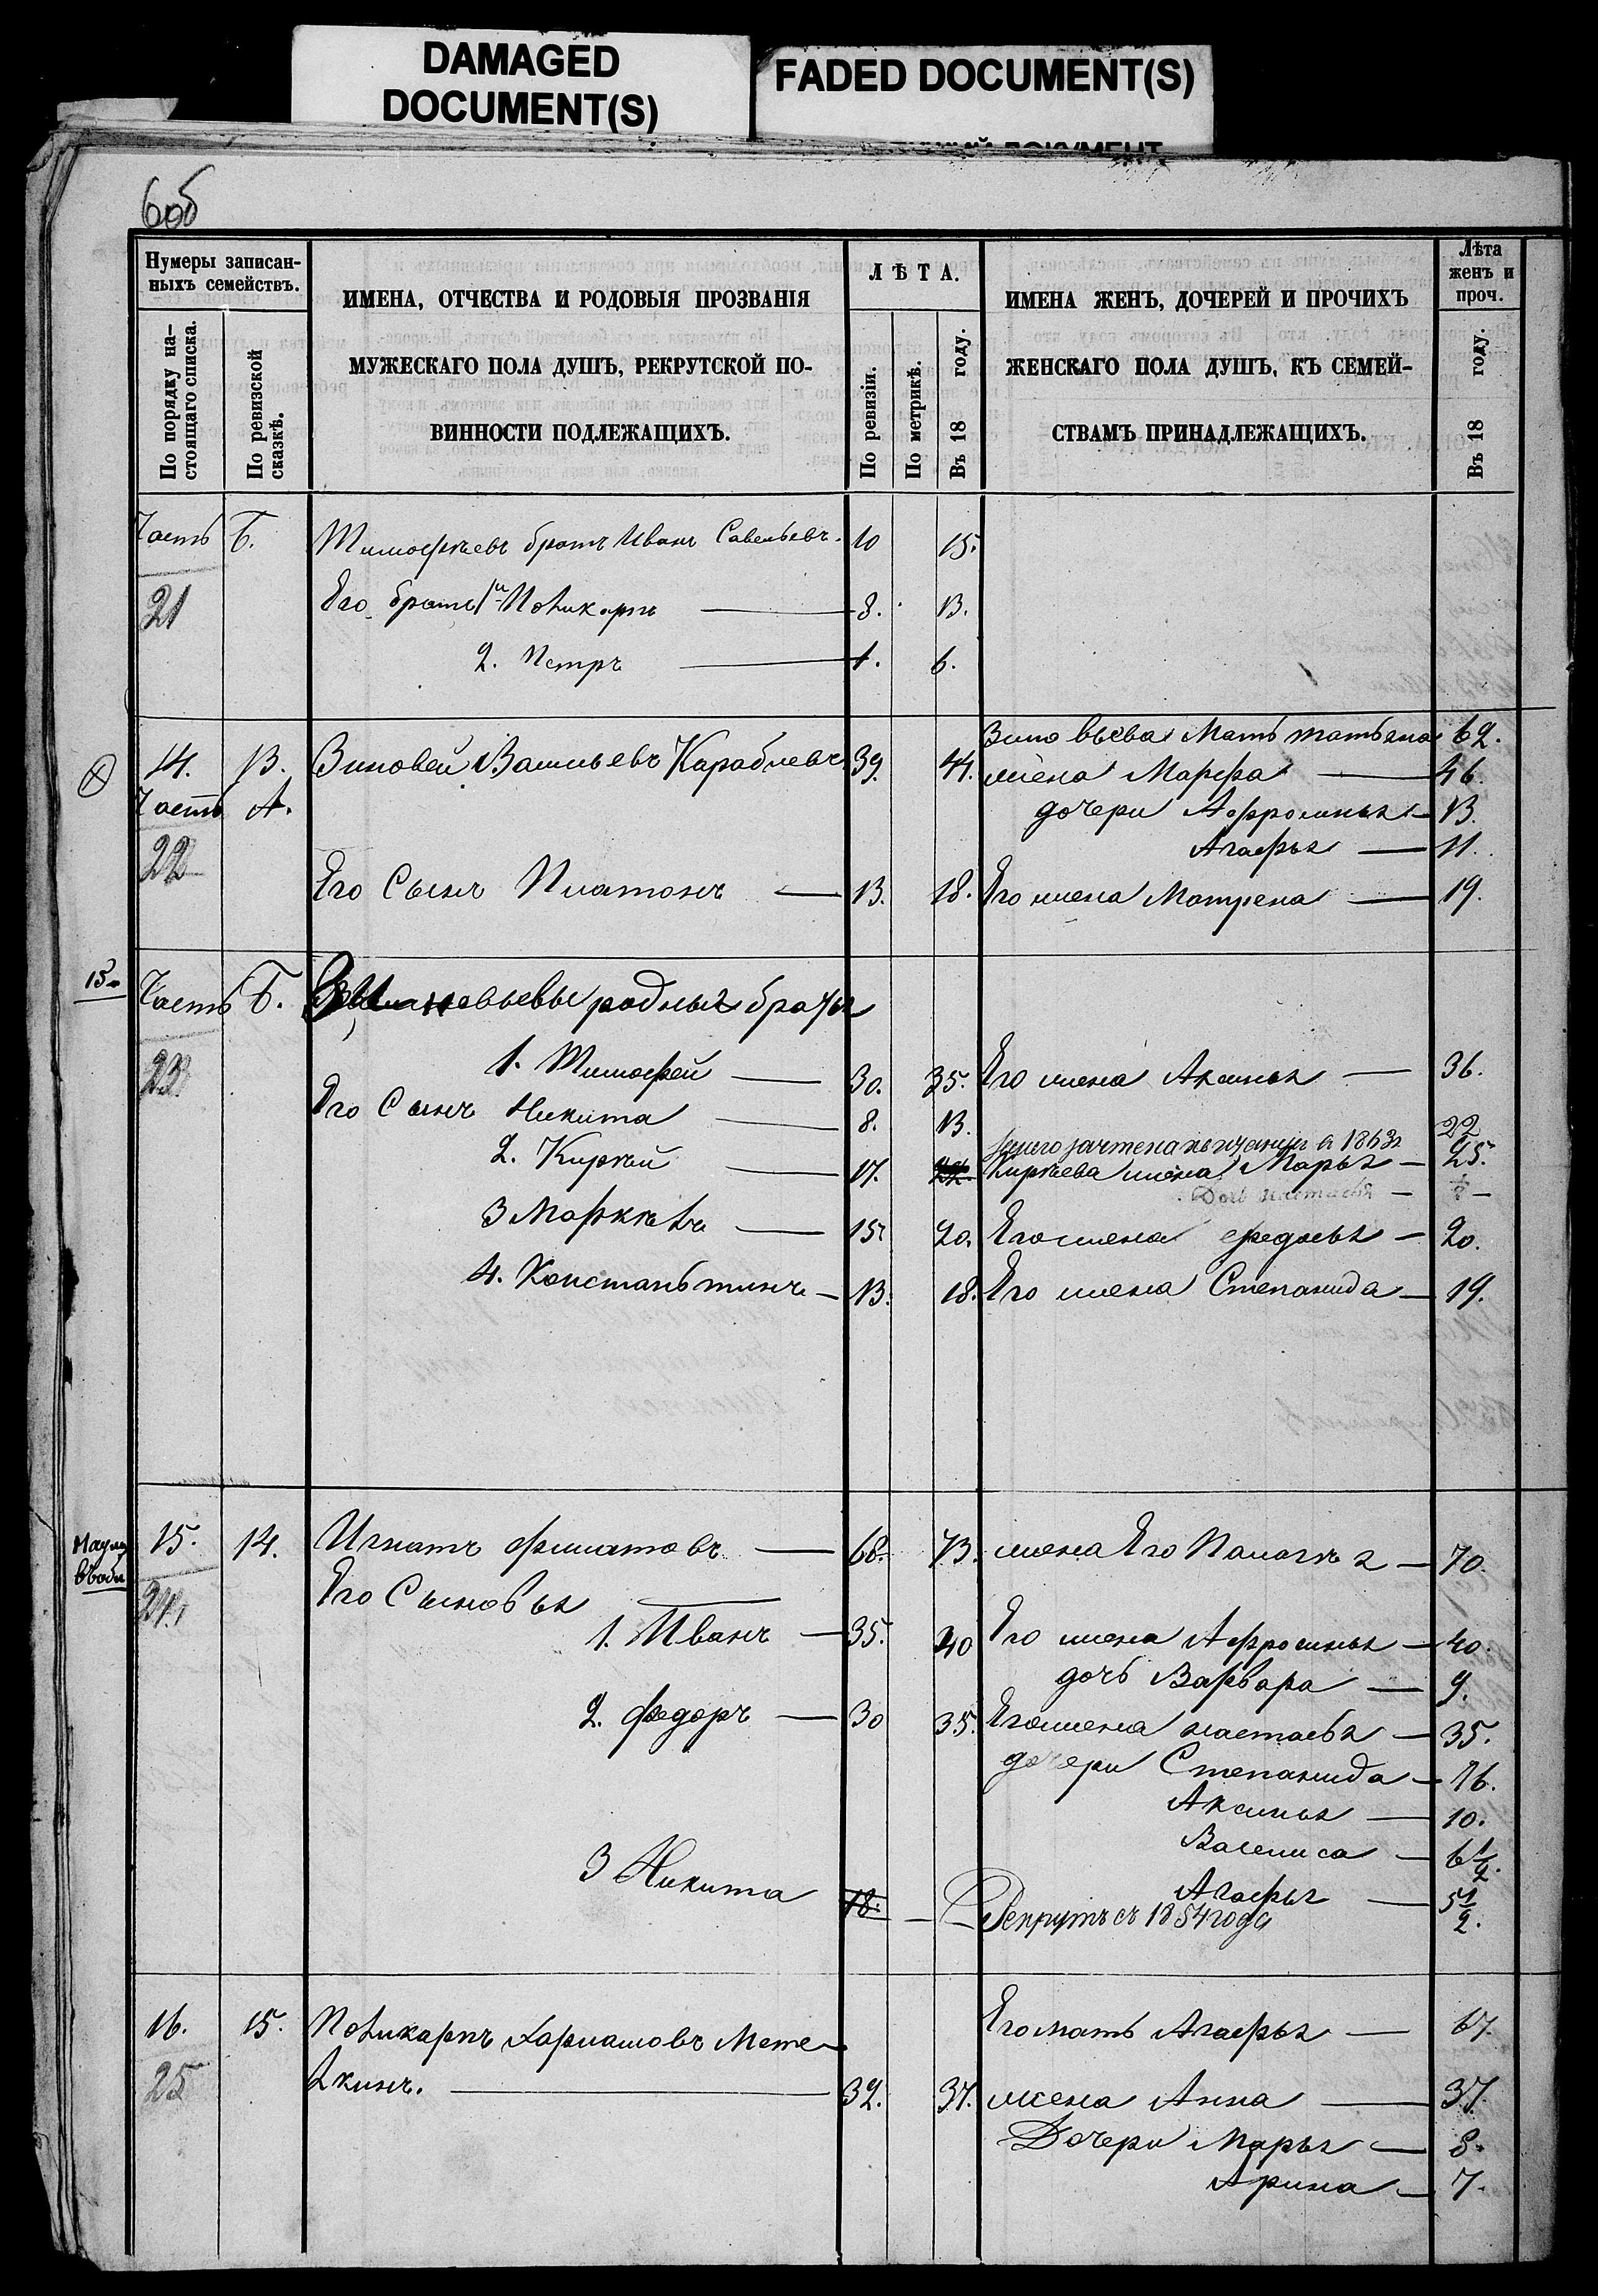 DAMAGED
DOCUMENT(S)
FADED DOCUMENT(S)
6об
Нумеры записан-
ныхъ семействъ.
По порядку на-
стоящаго списка.
По ревизской
сказкѣ.
ИМЕНА, ОТЧЕСТВА И РОДОВЫЯ ПРОЗВАНІЯ
МУЖЕСКАГО ПОЛА ДУШЪ, РЕКРУТСКОЙ ПО-
ВИННОСТИ ПОДЛЕЖАЩИХЪ.
ЛѢТА.
По ревизіи.
По метрикѣ.
Въ 18 году.
ИМЕНА ЖЕНЪ, ДОЧЕРЕЙ И ПРОЧИХЪ
ЖЕНСКАГО ПОЛА ДУШЪ, КЪ СЕМЕЙ-
СТВАМЪ ПРИНАДЛЕЖАЩИХЪ.
Лѣта
женъ и
проч.
Въ 18 году.
Часть Б. Тимофѣевъ братъ Иванъ Савельевъ. 10 15.
21 Его братья 1й Поликарпъ 8. 13.
2. Петръ 1. 6.
Зиновьева Мать татьяна 62.
14. 13. Зиновей Васильевъ Караблевъ 39. 44. жена Марфа 46.
Часть А. дочери Афросинья 13.
22 Агафья 11.
Его Сынъ Платонъ 13. 18. Его жена Матрена 19.
15
Часть Б. Зиновьевы родныя братья
23 1. Тимофей 30. 35. Его жена Аксинья 36.
Его Сынъ Никита 8. 13.
зачтена 1863 22
2. Кирѣй 17. 22. Кирѣева жена Марья 25.
Дочь Настасья
3 Маркѣлъ 15 20. Его жена федосья 20.
4. Константинъ 13. 18. Его жена Степанида 19.
15. 14. Игнатъ филатовъ 68. 73. жена Его Палагѣя 70.
24 Его Сыновья
1. Иванъ 35. 40 Его жена Афросинья 40.
дочь Варвара 9.
2. федоръ 30 35. Его жена настасья 35.
дочери Степанида 16.
Аксинья 10.
Василиса 6 1/2.
3 Никита 18. Агафья 5 1/2.
Рекрутъ съ 1854 года
16. 15. Поликарпъ Харлашовъ Мете- Его мать Агафья 67.
25 лкинъ. 32. 37. жена Анна 37.
Дочери Марья 8.
Арина 7.